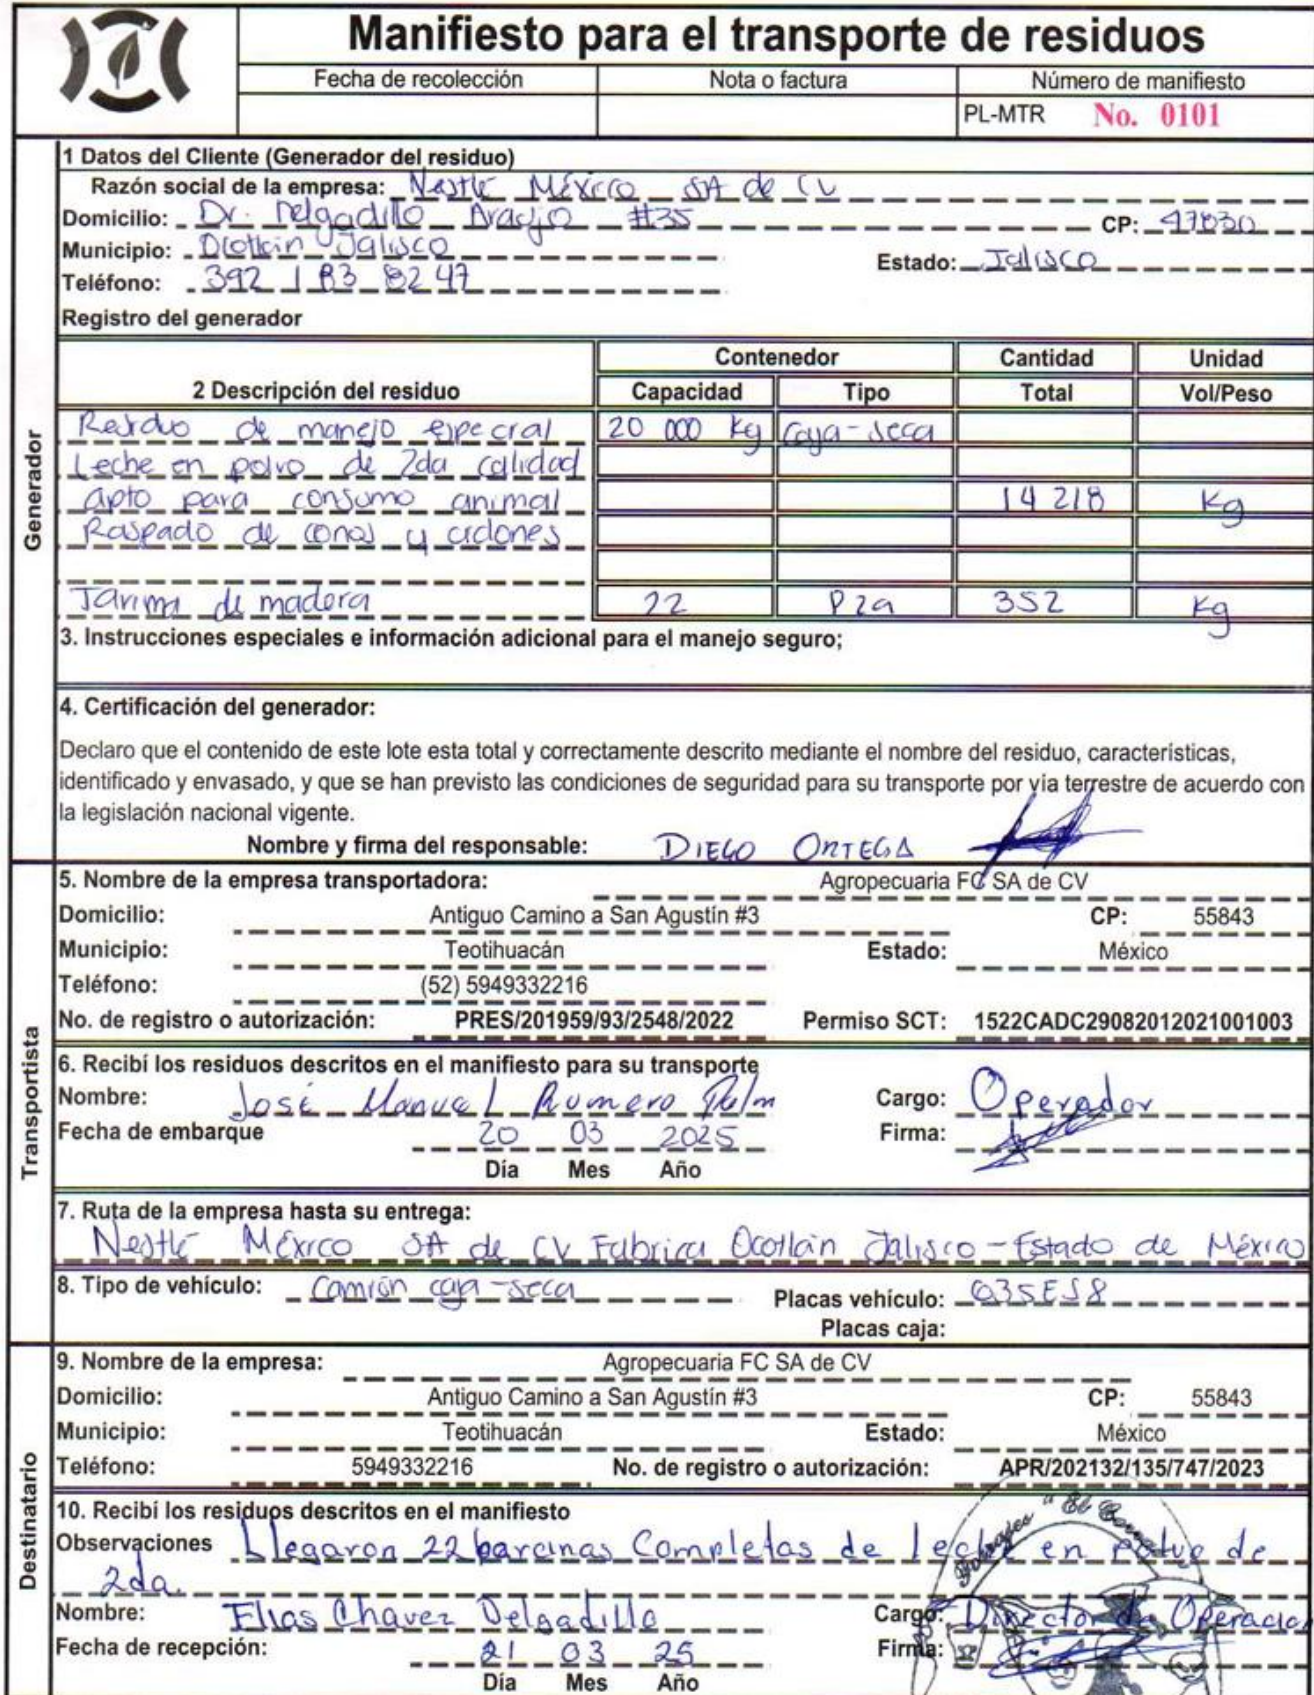 Manifiesto para el transporte de residuos
Fecha de recolección Nota o factura Número de manifiesto
PL-MTR No. 0101
1 Datos del Cliente (Generador del residuo)
Razón social de la empresa: Nestlé México SA de CV
Domicilio: Dr. Delgadillo Araujo #35 CP: 47830
Municipio: Ocotlán Jalisco Estado: Jalisco
Teléfono: 392 183 82 47
Registro del generador
Generador
2 Descripción del residuo Contenedor Cantidad Unidad
Capacidad Tipo Total Vol/Peso
Residuo de manejo especial 20 000 kg Caja-seca
Leche en polvo de 2da calidad
apto para consumo animal 14 218 Kg
Raspado de conos y ciclones
Tarima de madera 22 Pza 352 Kg
3. Instrucciones especiales e información adicional para el manejo seguro;
4. Certificación del generador:
Declaro que el contenido de este lote esta total y correctamente descrito mediante el nombre del residuo, características,
identificado y envasado, y que se han previsto las condiciones de seguridad para su transporte por vía terrestre de acuerdo con
la legislación nacional vigente.
Nombre y firma del responsable: DIEGO ORTEGA
Transportista
5. Nombre de la empresa transportadora: Agropecuaria FC SA de CV
Domicilio: Antiguo Camino a San Agustín #3 CP: 55843
Municipio: Teotihuacán Estado: México
Teléfono: (52) 5949332216
No. de registro o autorización: PRES/201959/93/2548/2022 Permiso SCT: 1522CADC29082012021001003
6. Recibí los residuos descritos en el manifiesto para su transporte
Nombre: José Manuel Romero Cargo: Operador
Fecha de embarque 20 03 2025 Firma:
Día Mes Año
7. Ruta de la empresa hasta su entrega:
Nestlé México SA de CV Fabrica Ocotlán Jalisco - Estado de México
8. Tipo de vehículo: Camión caja-seca Placas vehículo: 035ES8
Placas caja:
Destinatario
9. Nombre de la empresa: Agropecuaria FC SA de CV
Domicilio: Antiguo Camino a San Agustín #3 CP: 55843
Municipio: Teotihuacán Estado: México
Teléfono: 5949332216 No. de registro o autorización: APR/202132/135/747/2023
10. Recibí los residuos descritos en el manifiesto
Observaciones Llegaron 22 barcinas Completas de leche en Polvo de
2da.
Nombre: Elias Chavez Delgadillo Cargo: Director de Operacio
Fecha de recepción: 21 03 25 Firma:
Día Mes Año